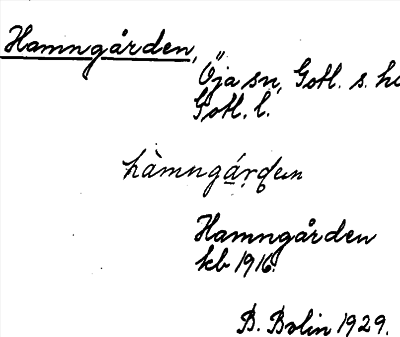 Hamngården,
Öja sn, Gotl. s. hd
Gotl. l.
hàmngá̲rden
Hamngården
kb 1916.
B. Bolin 1929.